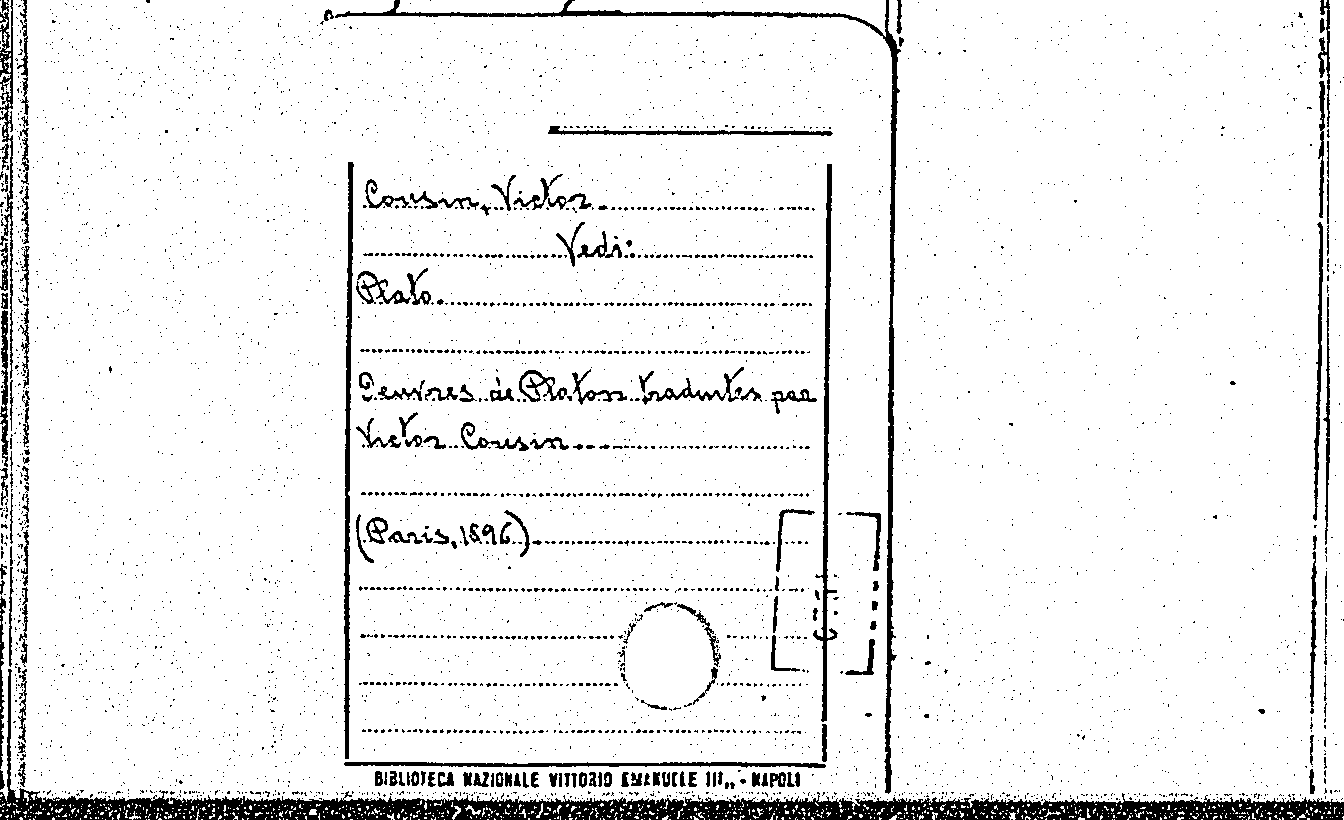 Cousin, Victor.
Vedi:
Plato.
Oeuvres de Platon traduites par
Victor Cousin...
(Paris, 1896).
BIBLIOTECA NAZIONALE VITTORIO EMANUELE III„ - NAPOLI